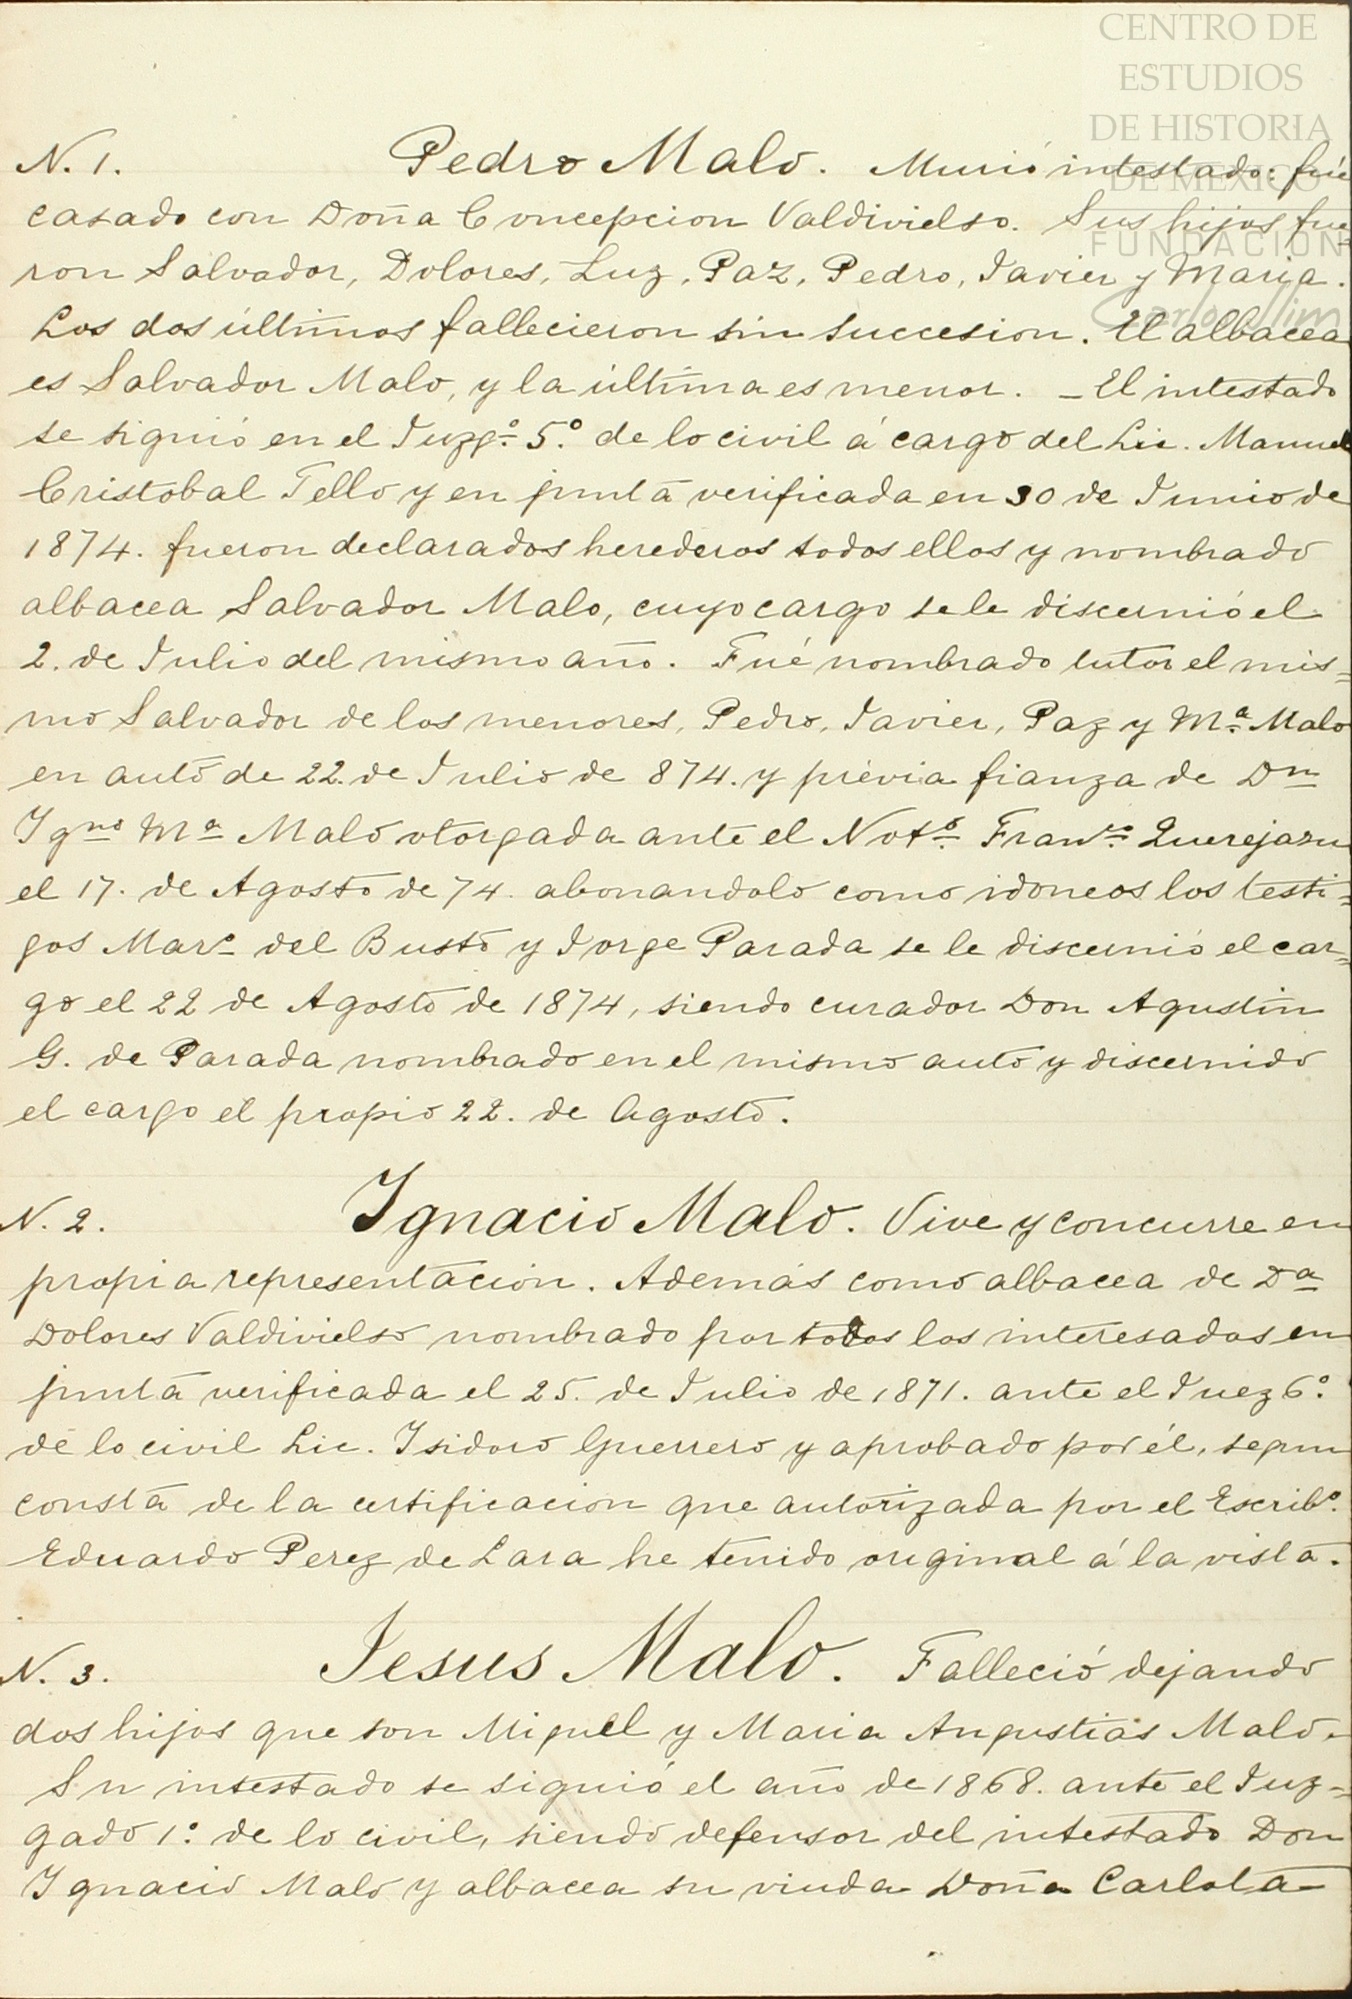 CENTRO DE
ESTUDIOS
DE HISTORIA
DE MÉXICO
FUNDACIÓN
Carlos Slim
N. 1. Pedro Malo. Murió intestado: fué
casado con Doña Concepcion Valdivielso. Sus hijos fue=
ron Salvador, Dolores, Luz, Paz, Pedro, Javier y Maria.
Los dos últimos fallecieron sin succesion. El albacea
es Salvador Malo, y la última es menor. _ El intestado
se siguió en el Juzgº 5º de lo civil á cargo del Lic. Manuel
Cristobal Tello y en junta verificada en 30 de Junio de
1874. fueron declarados herederos todos ellos y nombrado
albacea Salvador Malo, cuyo cargo se le discernió el
2. de Julio del mismo año. Fué nombrado tutor el mis=
mo Salvador de los menores, Pedro, Javier, Paz y Mª Malo
en auto de 22. de Julio de 874. y prévia fianza de Dn
Ygno Mª Malo otorgada ante el Notº Franco Querejazu
el 17. de Agosto de 74. abonandolo como idoneos los testi=
gos Marc del Busto y Jorge Parada se le discernió el car=
go el 22 de Agosto de 1874, siendo curador Don Agustin
G. de Parada nombrado en el mismo auto y discernido
el cargo el propio 22. de Agosto.
N. 2. Ygnacio Malo. Vive y concurre en
propia representacion. Además como albacea de Dª
Dolores Valdivielso nombrado por todos los interesados en
junta verificada el 25. de Julio de 1871. ante el Juez 6º
de lo civil Lic. Isidoro Guerrero y aprobado por él, segun
consta de la certificacion que autorizada por el Escribº
Eduardo Perez de Lara he tenido original á la vista.
N. 3. Jesus Malo. Falleció dejando
dos hijos que son Miguel y Maria Angustias Malo.
Su intestado se siguió el año de 1868. ante el Juz=
gado 1º de lo civil, siendo defensor del intestado Don
Ygnacio Malo y albacea su viuda Doña Carlota